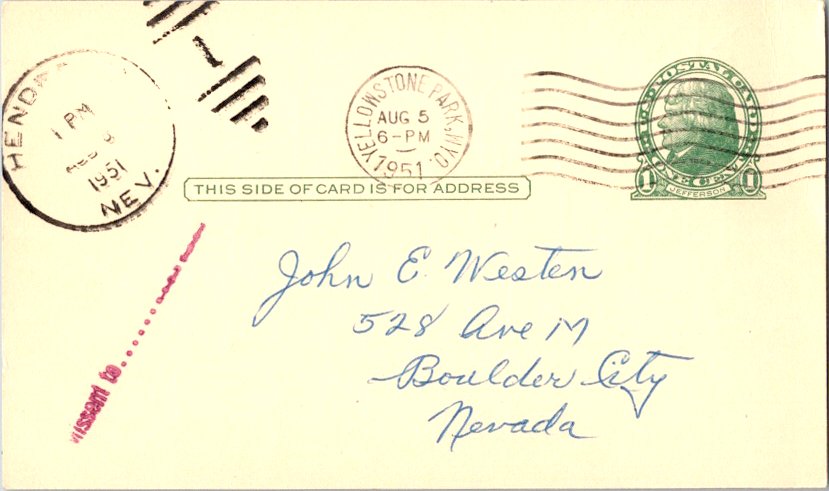 HEND
1 PM
8
1951
NEV.
YELLOWSTONE PARK, WYO.
AUG 5
6-PM
1951
U.S. POSTAL CARD
ONE CENT
1 JEFFERSON 1
THIS SIDE OF CARD IS FOR ADDRESS
Missent to
John E. Westen
528 Ave M
Boulder City
Nevada